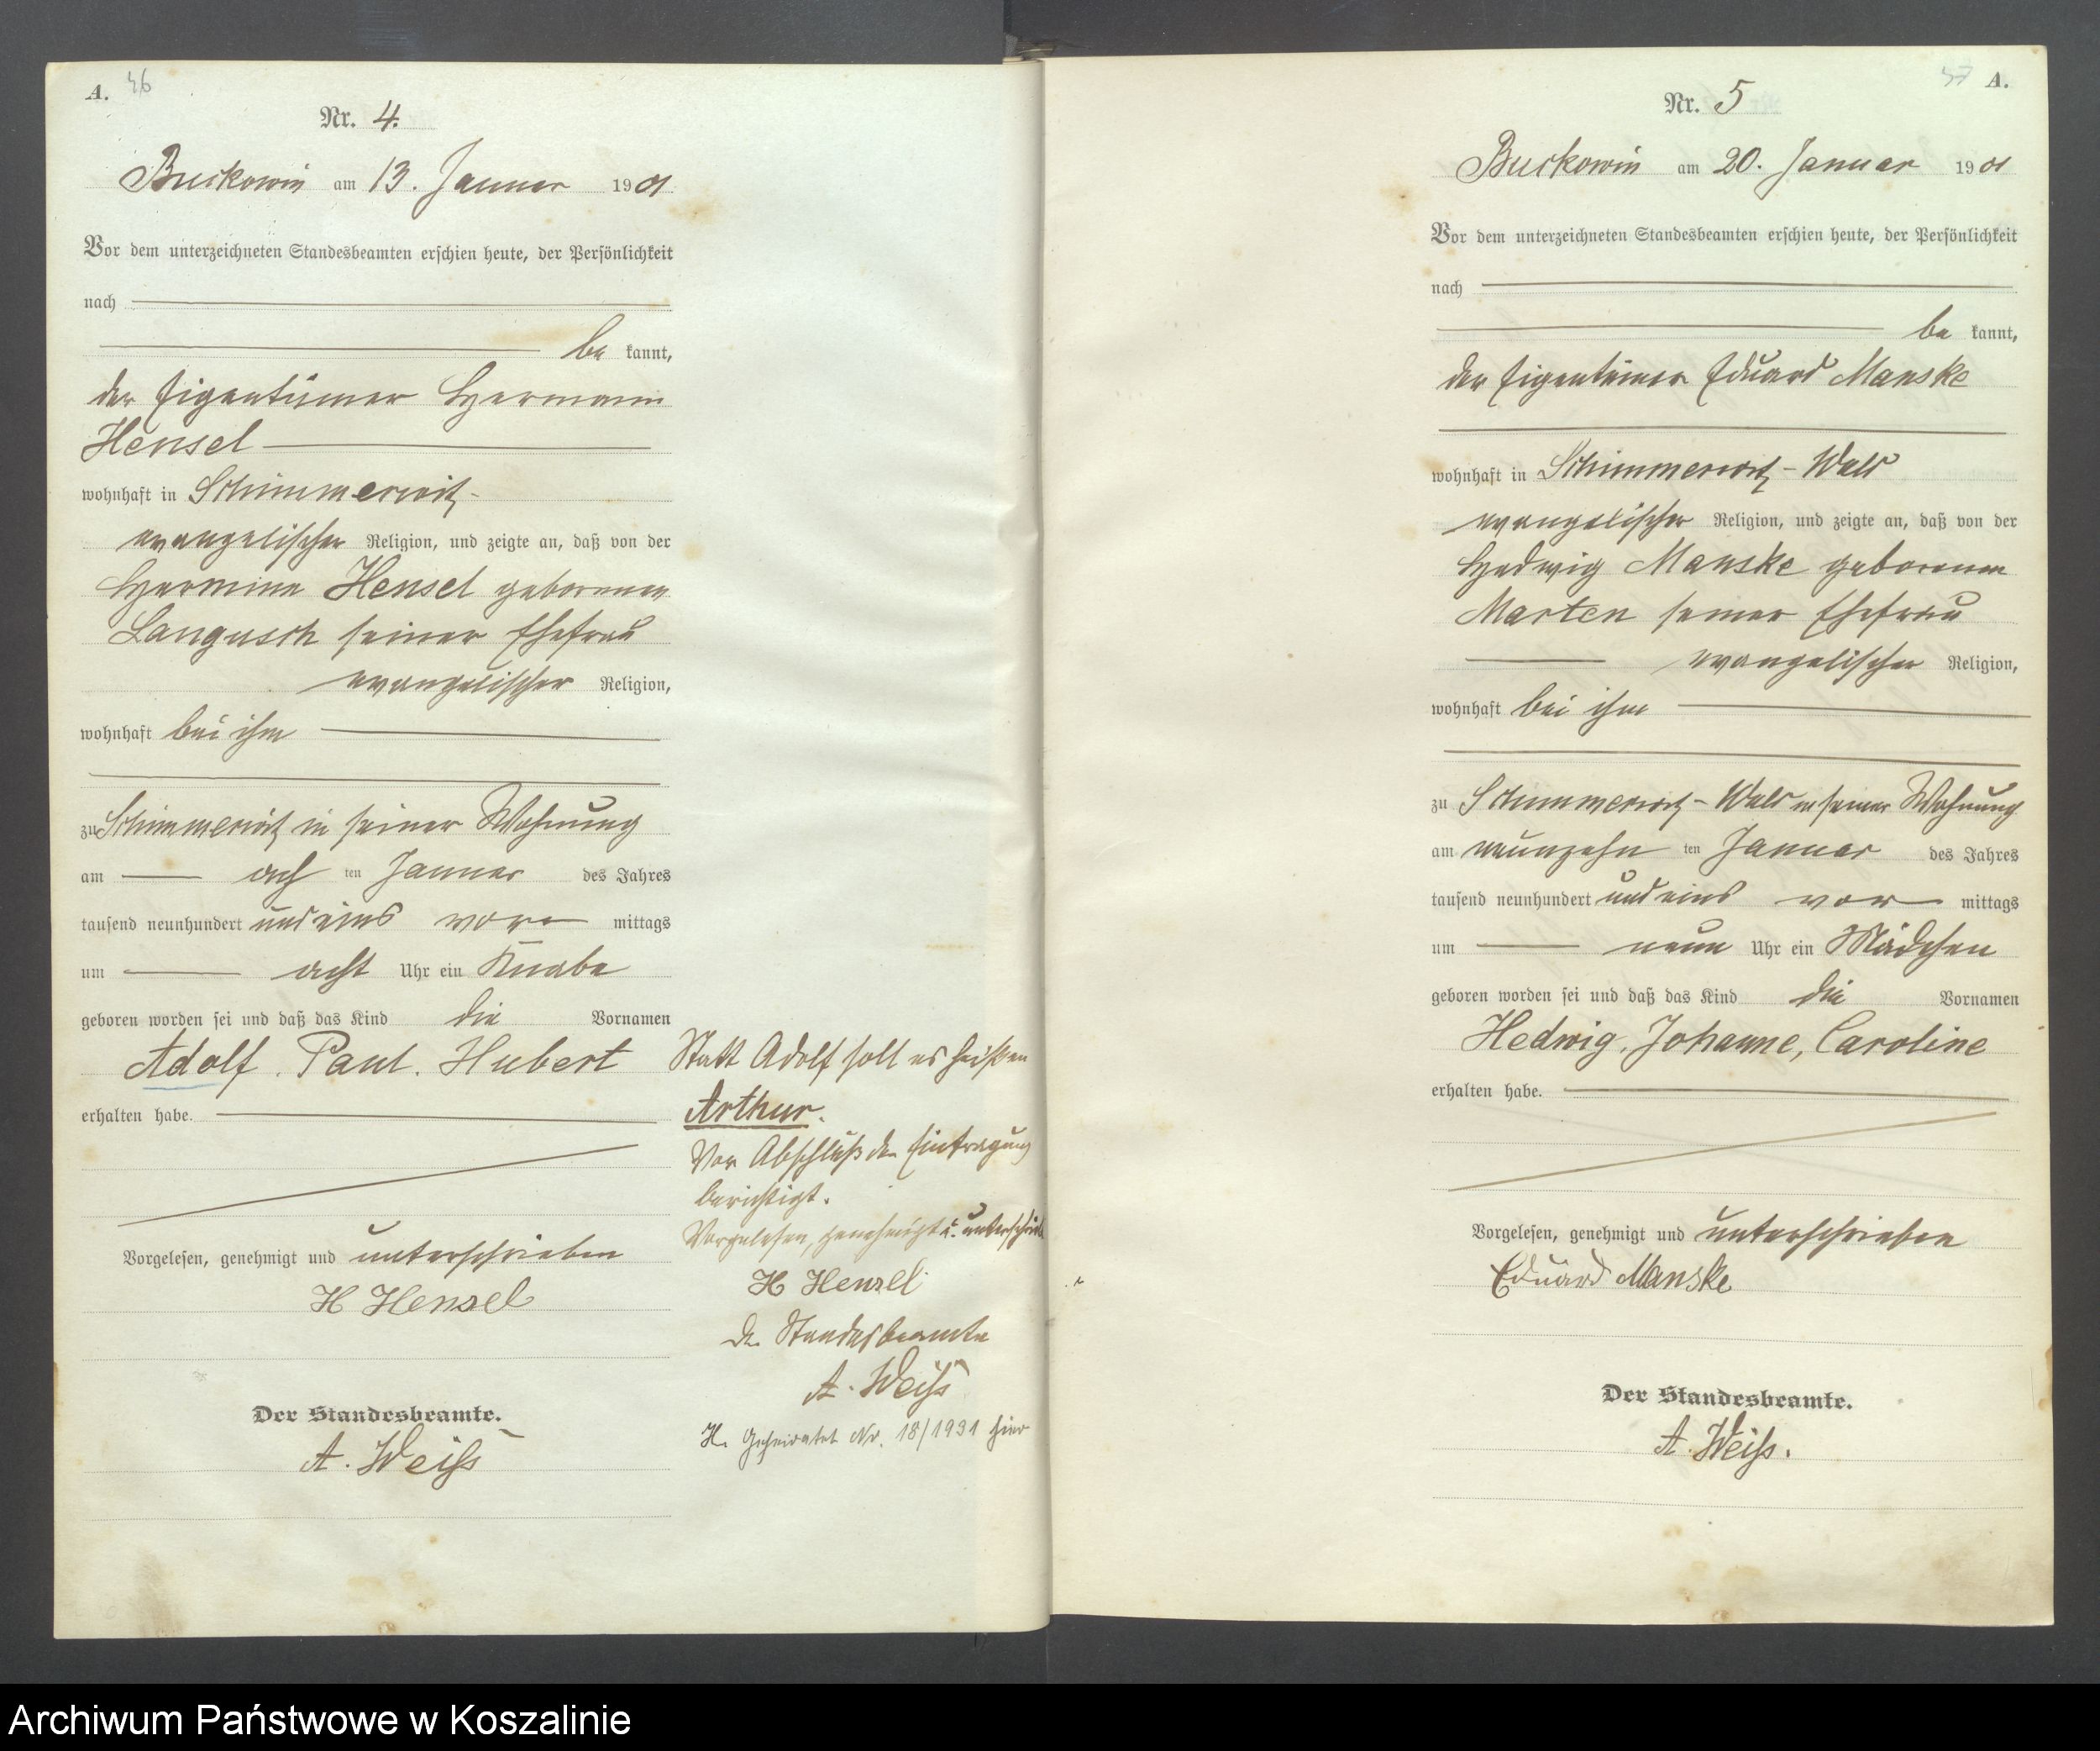 A. 46
Nr. 4.
Buckowin am 13. Januar 1901
Vor dem unterzeichneten Standesbeamten erschien heute, der Persönlichkeit
nach
be kannt,
der Eigentümer Hermann
Hensel
wohnhaft in Schimmerwitz
evangelischer Religion, und zeigte an, daß von der
Hermine Hensel geborenen
Langusch seiner Ehefrau
evangelischer Religion,
wohnhaft bei ihm
zu Schimmerwitz in seiner Wohnung
am ach ten Januar des Jahres
tausend neunhundert und eins vor mittags
um acht Uhr ein Knabe
geboren worden sei und daß das Kind die Vornamen
Adolf. Paul. Hubert
erhalten habe.
Vorgelesen, genehmigt und unterschrieben
H Hensel
Der Standesbeamte.
A. Weiß
Statt Adolf soll es heißen
Arthur.
Vor Abschluß der Eintragung
berichtigt.
Vorgelesen, genehmigt u. unterschrieben
H Hensel
Der Standesbeamte
A. Weiß
H. Geheiratet Nr. 18/1931 hier
57 A.
Nr. 5
Buckowin am 20. Januar 1901
Vor dem unterzeichneten Standesbeamten erschien heute, der Persönlichkeit
nach
be kannt,
der Eigentümer Eduard Manske
wohnhaft in Schimmerwitz - Wald
evangelischer Religion, und zeigte an, daß von der
Hedwig Manske geborenen
Marten seiner Ehefrau
evangelischer Religion,
wohnhaft bei ihm
zu Schimmerwitz - Wald in seiner Wohnung
am neunzehn ten Januar des Jahres
tausend neunhundert und eins vor mittags
um neun Uhr ein Mädchen
geboren worden sei und daß das Kind die Vornamen
Hedwig, Johanne, Caroline
erhalten habe.
Vorgelesen, genehmigt und unterschrieben
Eduard Manske
Der Standesbeamte.
A. Weiß.
Archiwum Państwowe w Koszalinie